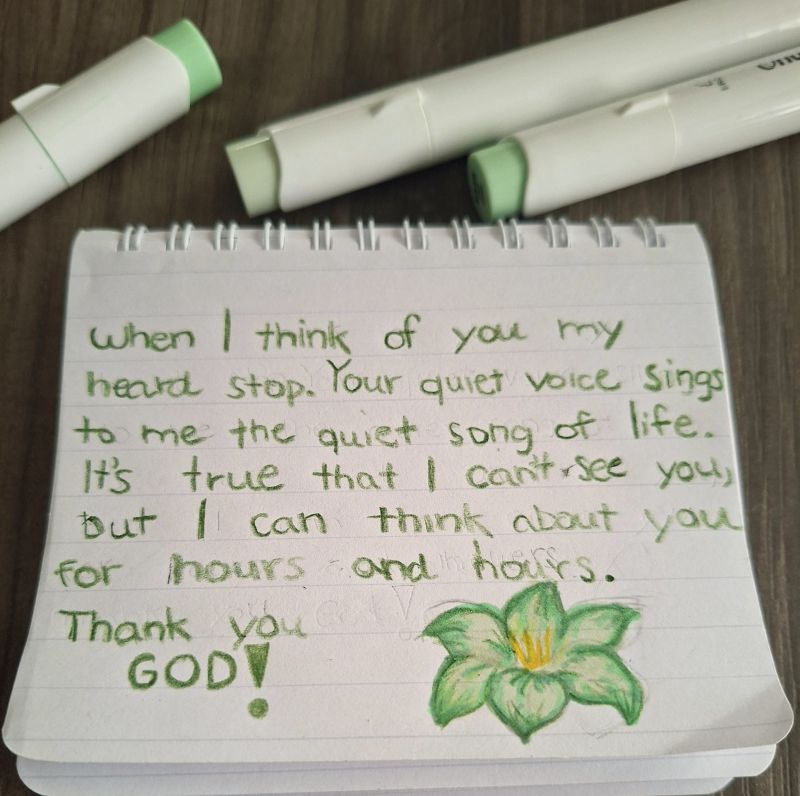 When I think of you my
heard stop. Your quiet voice sings
to me the quiet song of life.
It's true that I can't see you,
but I can think about you
for hours and hours.
Thank you
GOD!